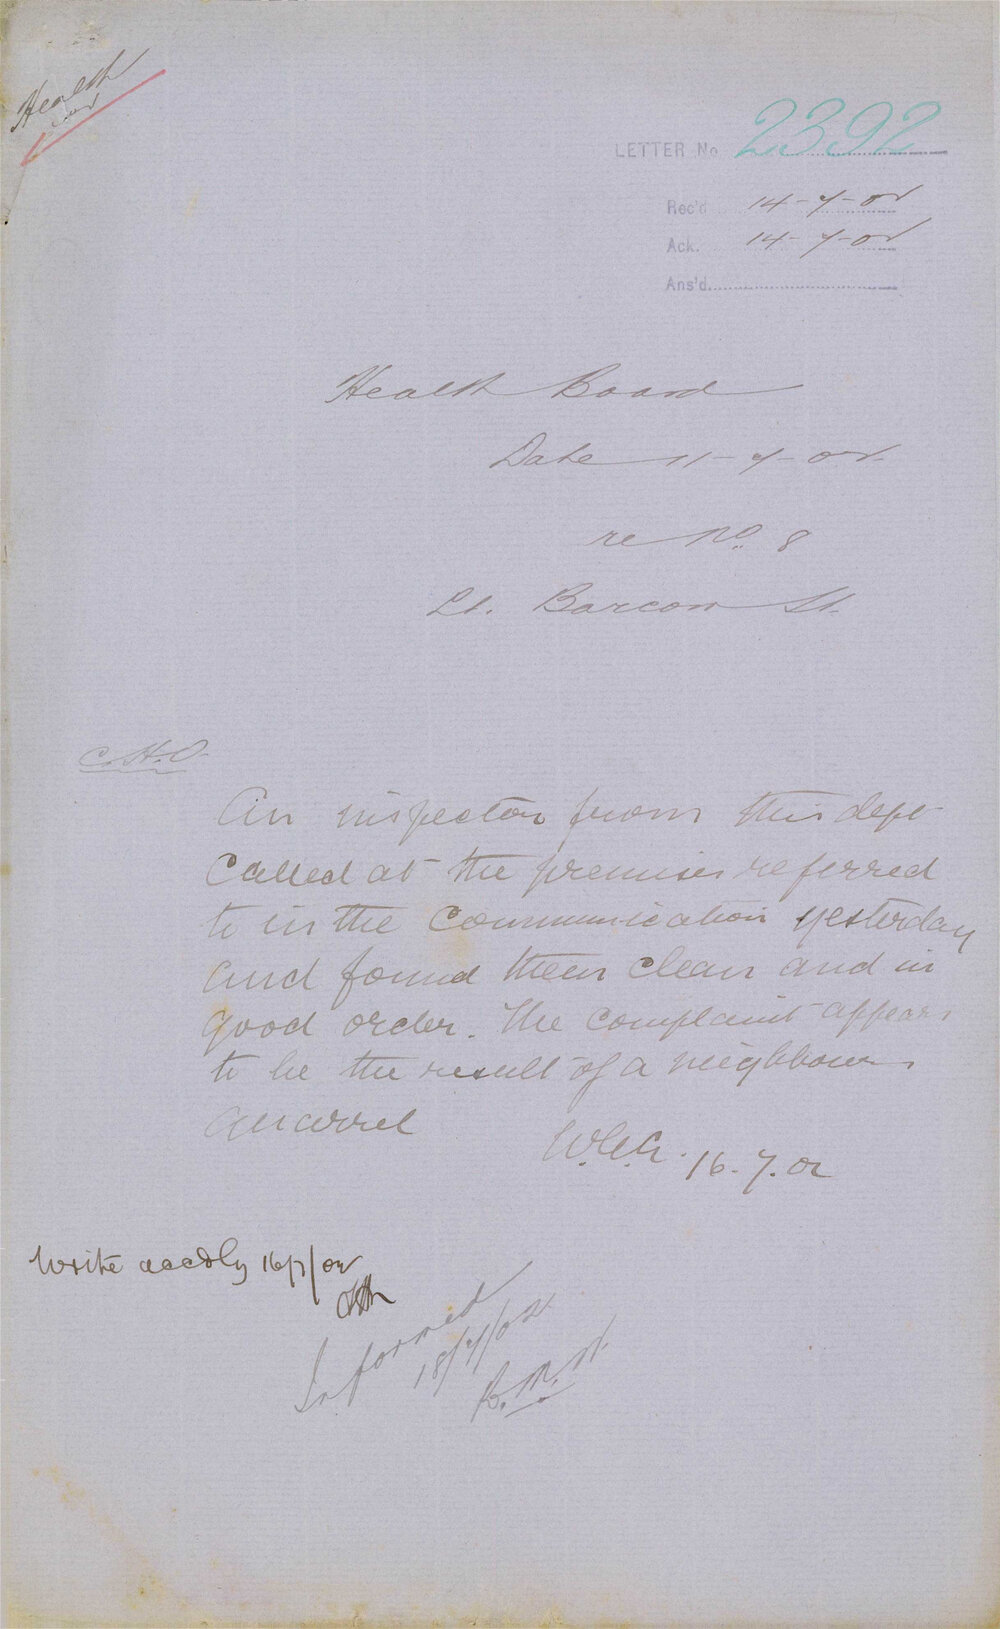 Health
LETTER No 2392
Rec'd 14-7-02
Ack. 14-7-02
Ans'd.
Health Board
Date 11-7-02
re No. 8
Lt. Barcom St.
C.H.O.
An inspector from this dept
called at the premises referred
to in the communication yesterday
and found them clean and in
good order. The complaint appears
to be the result of a neighbours
quarrel
W.G.G. 16.7.02
Write accdly 16/7/02
Informed
18/7/02